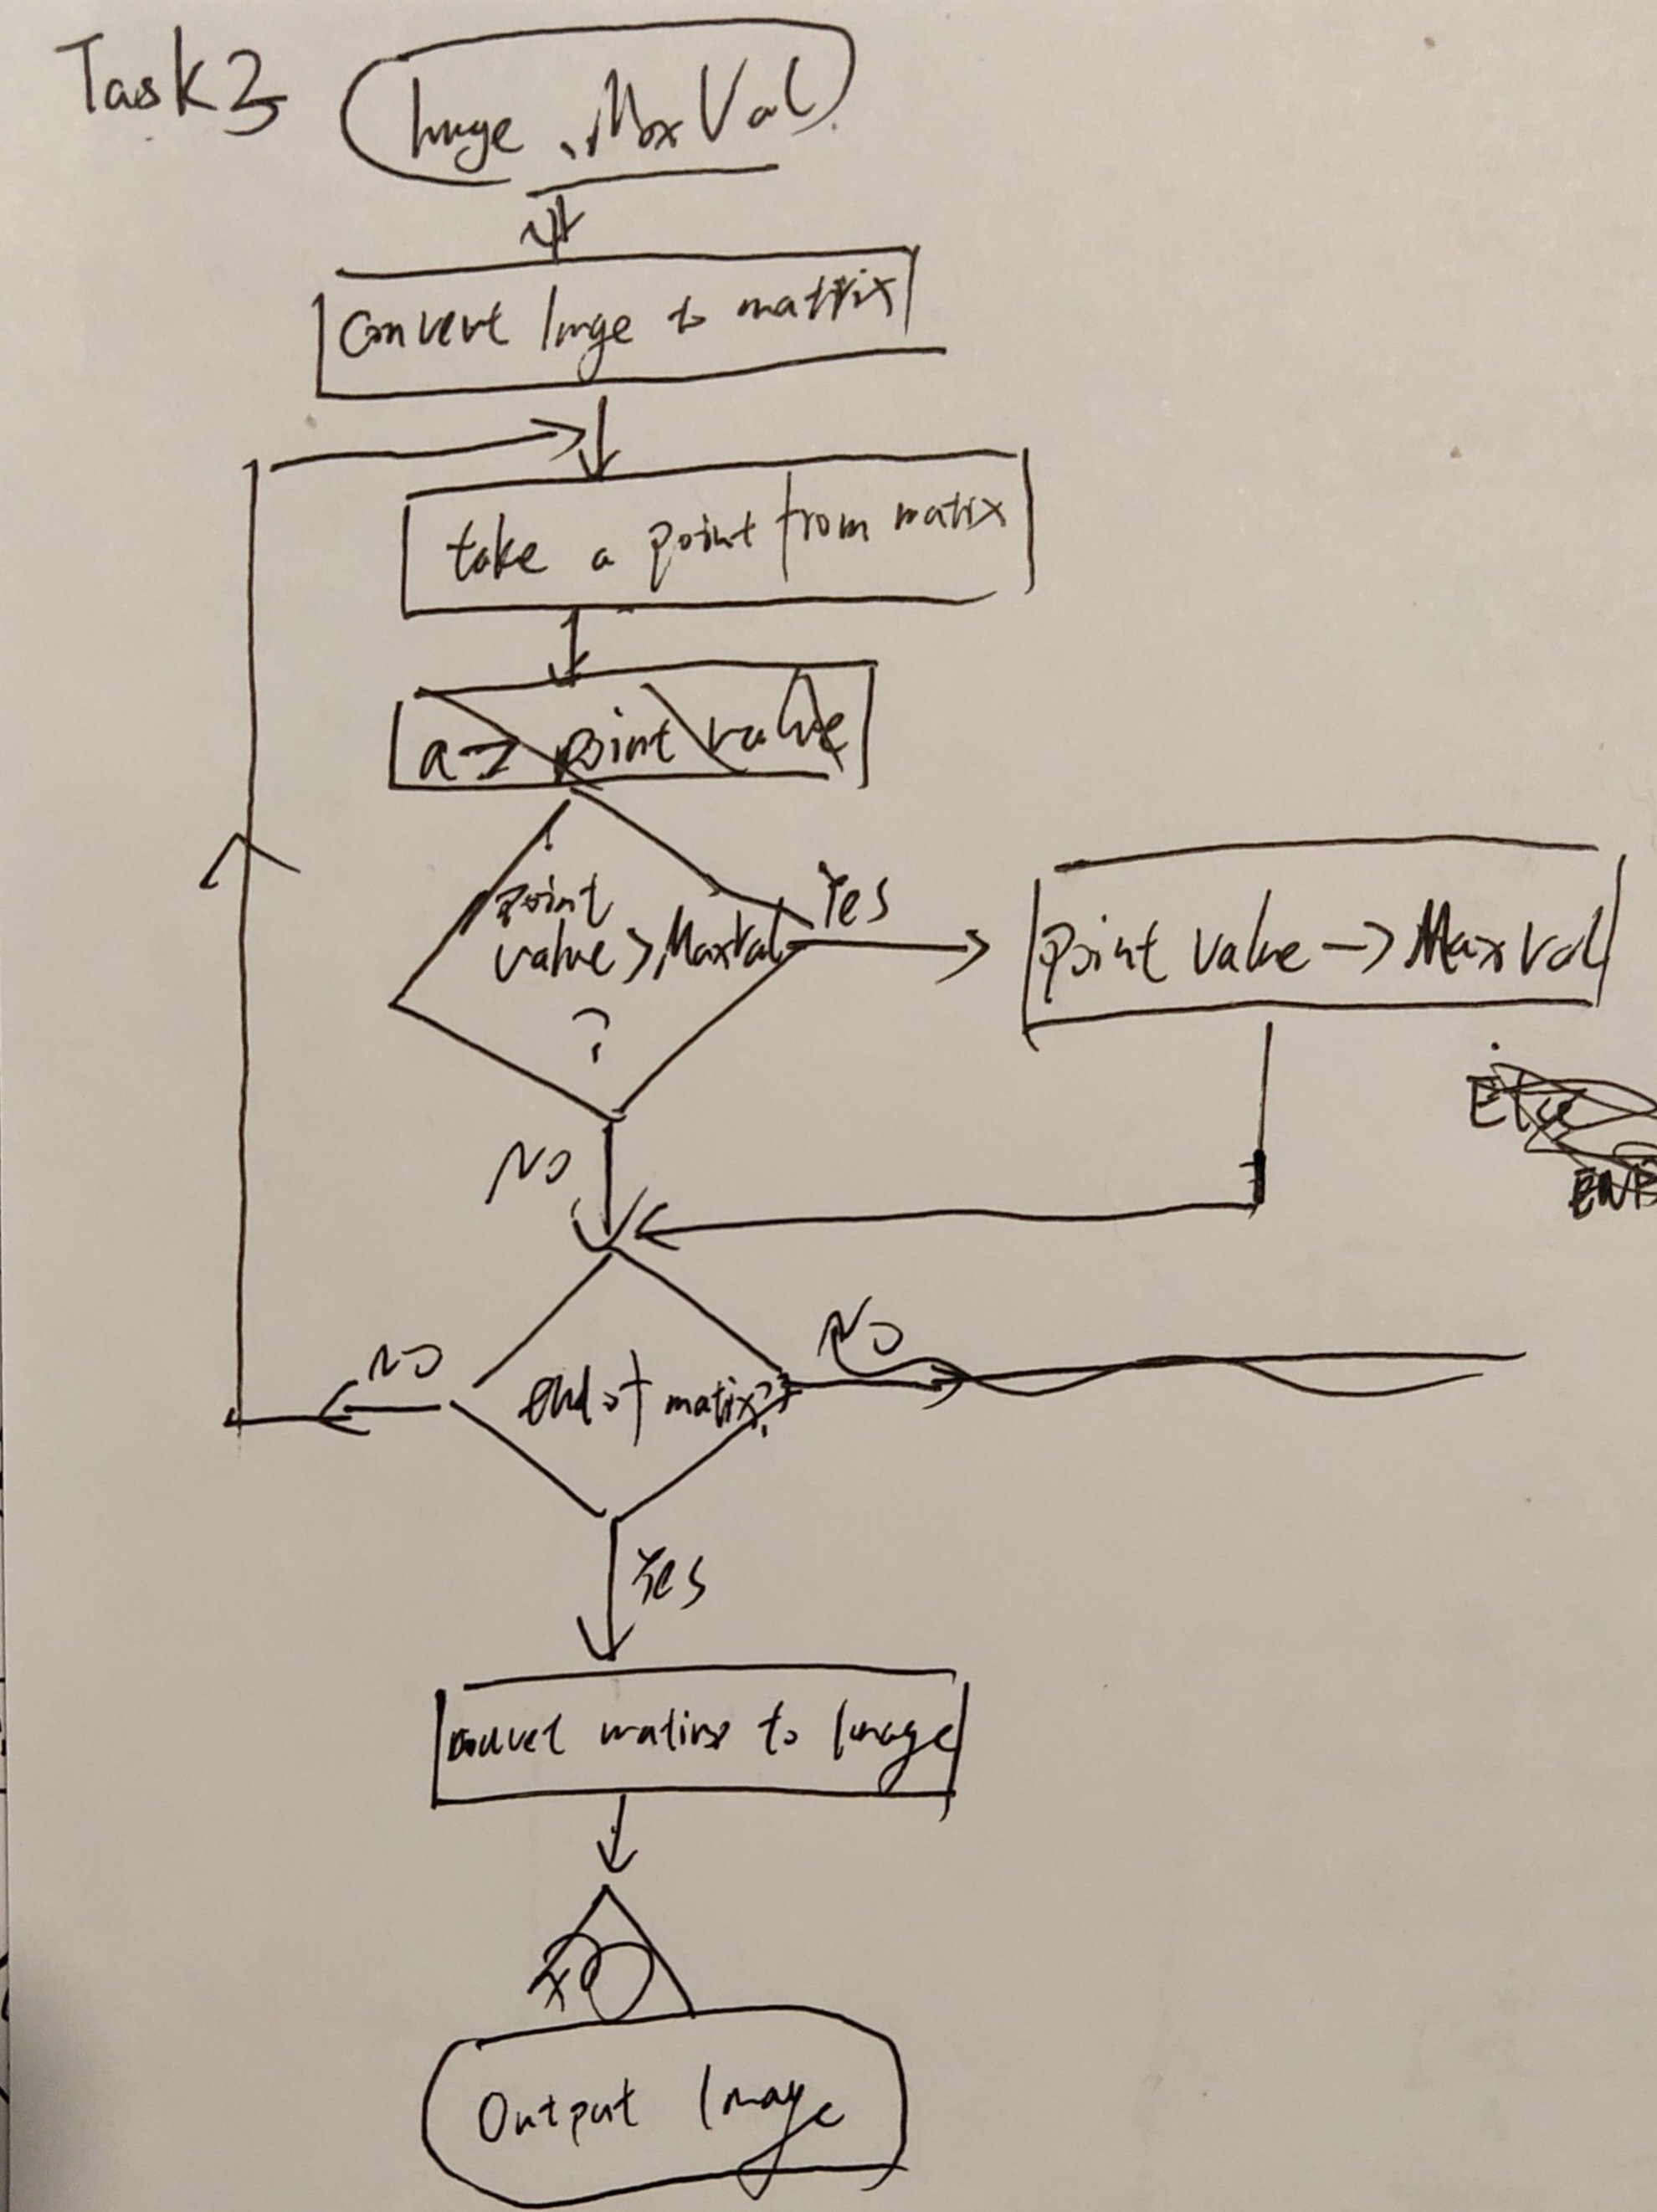 Task3
Image, MaxVal
Convert Image to matrix
take a point from matix
a → point value
point
value > MaxVal
?
Yes
point value → MaxVal
NO
NO
NO
end of matix?
Yes
to Image
Output Image